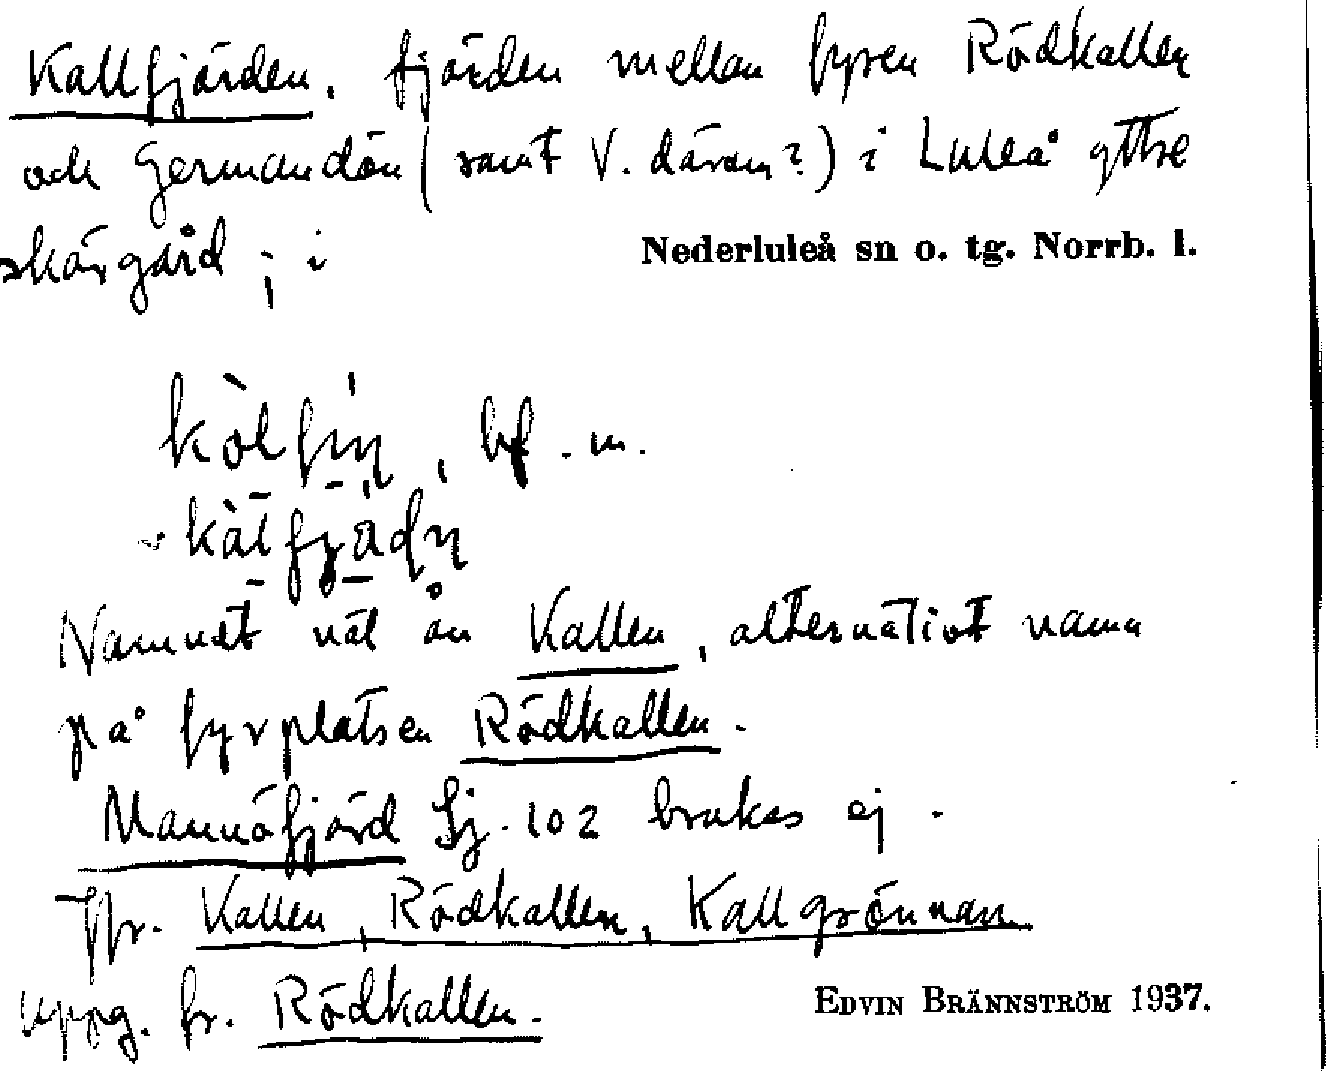 Kallfjärden, fjärden mellan fyren Rödkallen
och Germandön (samt V. därom?) i Luleå yttre
skärgård; i Nederluleå sn o. tg. Norrb. l.
kòlfi̱ń, bf. m.
kàlfjádn
Namnet väl än Kallen, alternativt namn
på fyrplatsen Rödkallen.
Mannöfjärd Sj. 102 brukas ej.
Jfr. Kallen, Rödkallen, Kallgrönnan
uppg. fr. Rödkallen.
EDVIN BRÄNNSTRÖM 1937.